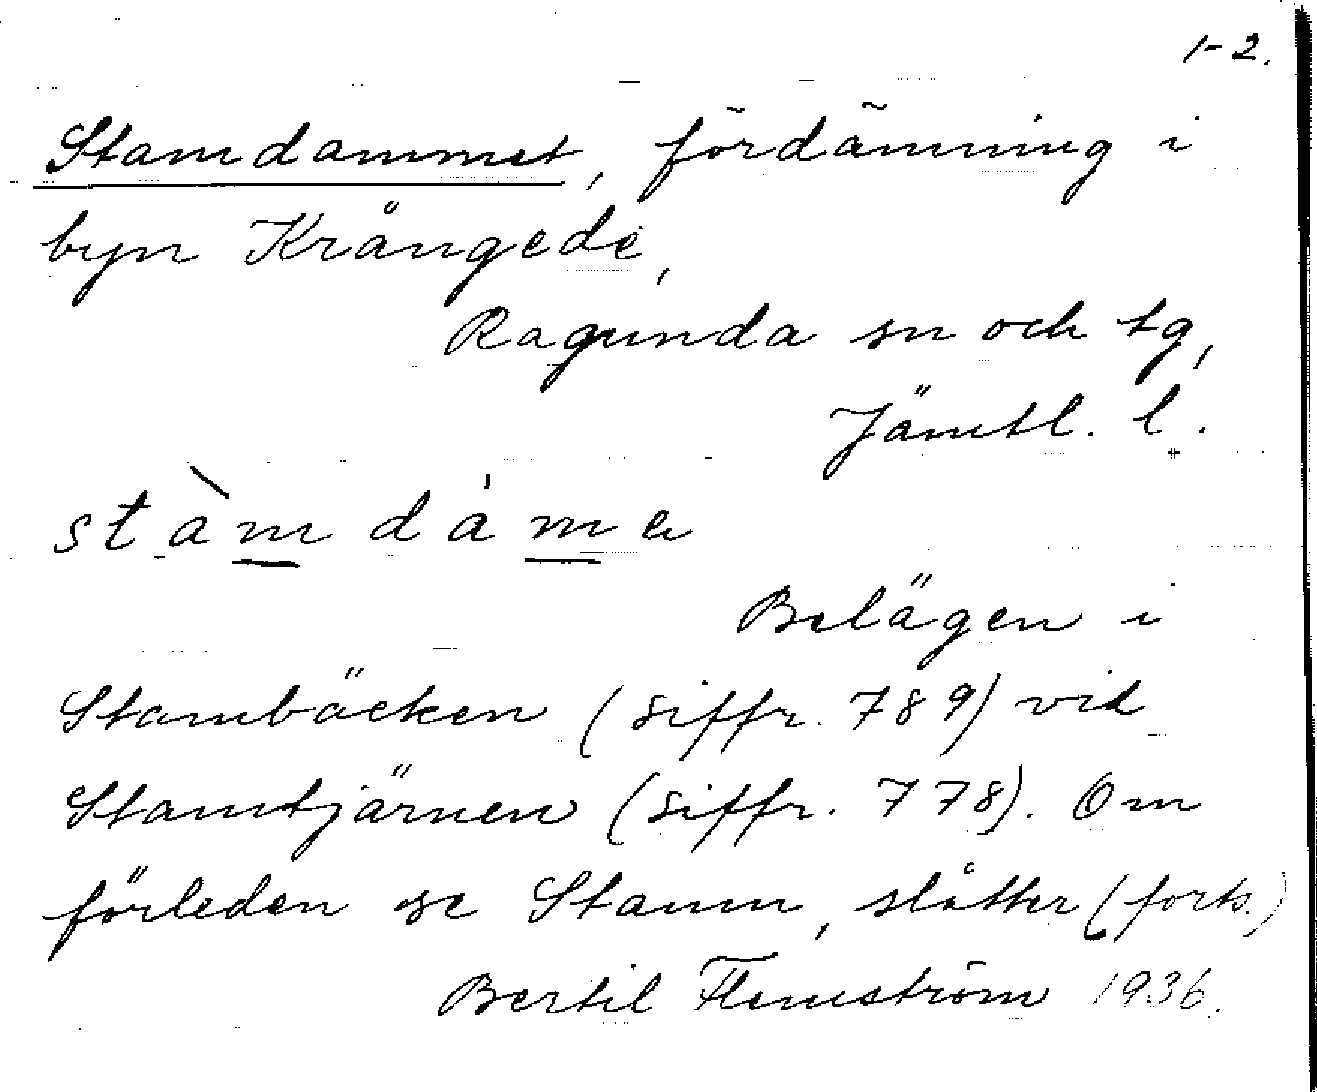 1-2.
Stamdammet, fördämning i
byn Krångede,
Ragunda sn och tg,
Jämtl. l.
stàm dá me
Belägen i
Stambäcken (siffr. 789) vid
Stamtjärnen (siffr. 778). Om
förleden se Stamm, slåtter (forts.)
Bertil Flemström 1936.